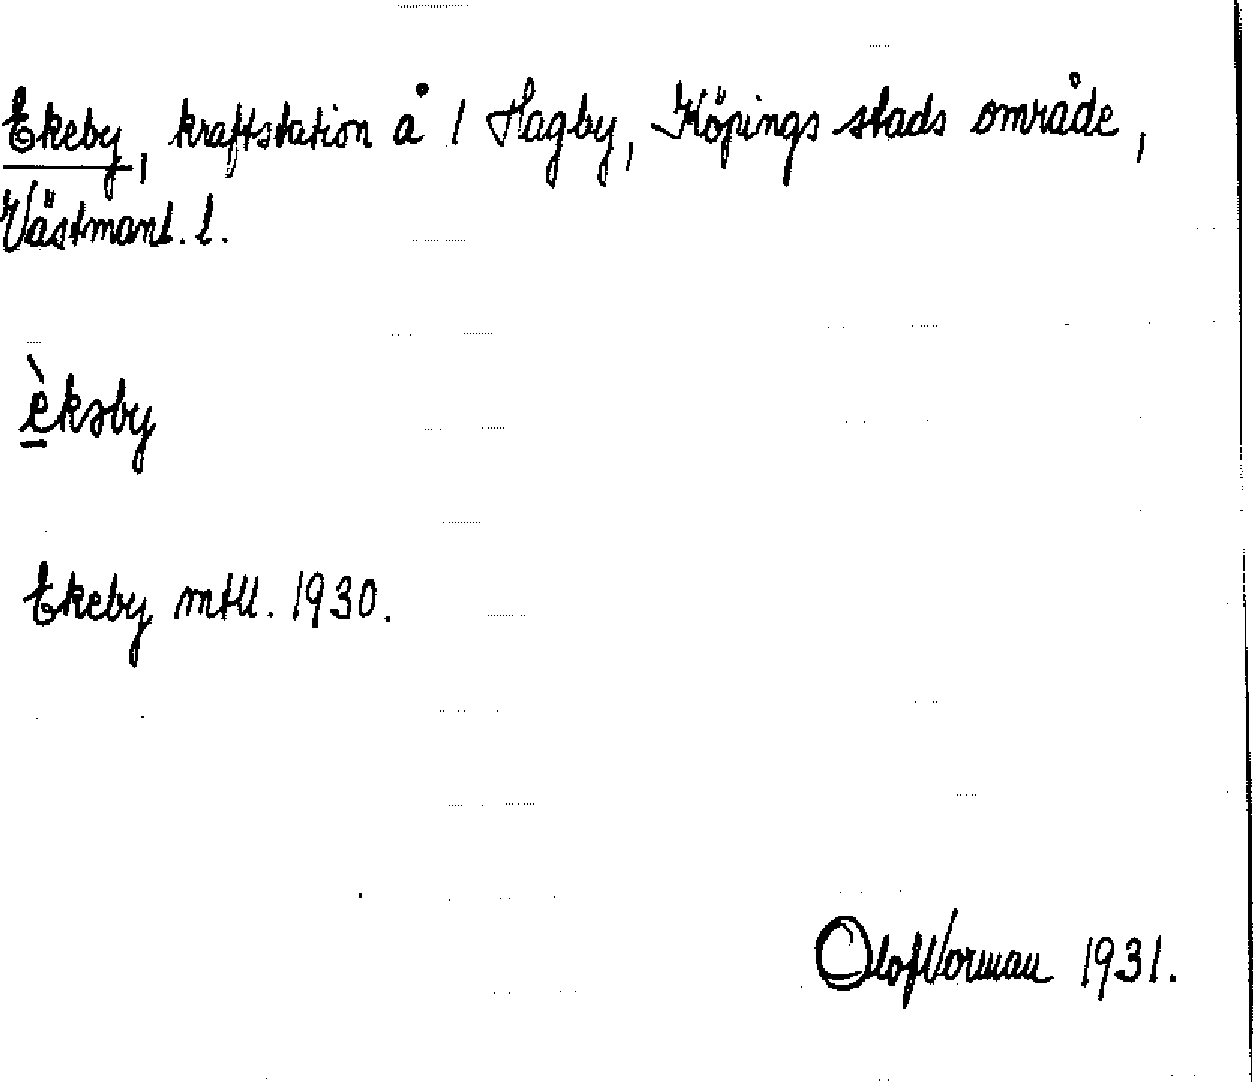 Ekeby, kraftstation å 1 Hagby, Köpings stads område,
Västmanl. l.
è̱kəby
Ekeby mtll. 1930.
Olof Norman 1931.